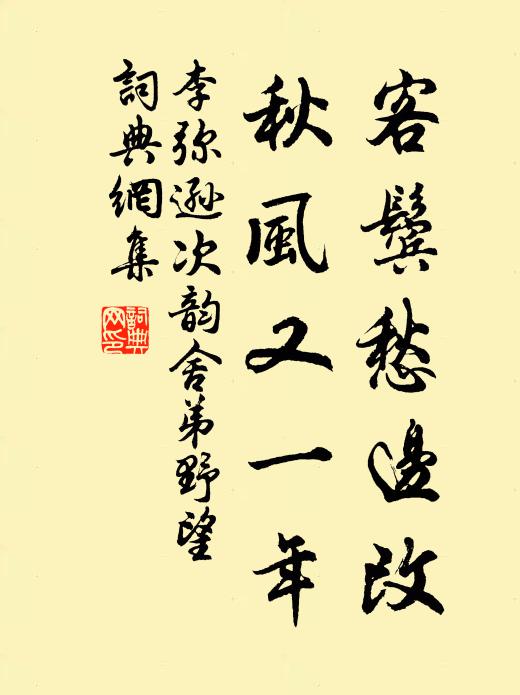 客鬢愁邊改
秋風又一年
李弥遜次韵舍弟野望
詞典網集
詞典网印